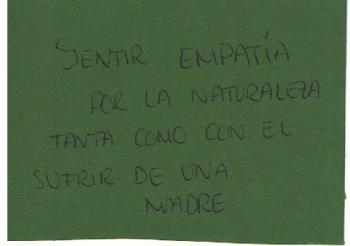 SENTIR EMPATÍA
POR LA NATURALEZA
TANTA COMO CON EL
SUFRIR DE UNA
MADRE